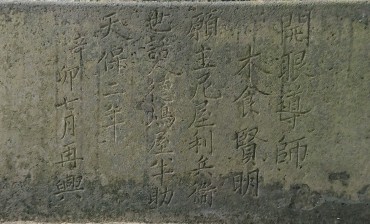 開眼導師
木食賢明
願主尼屋利兵衛
世話人嶋屋半助
天保二年
辛卯七月再興